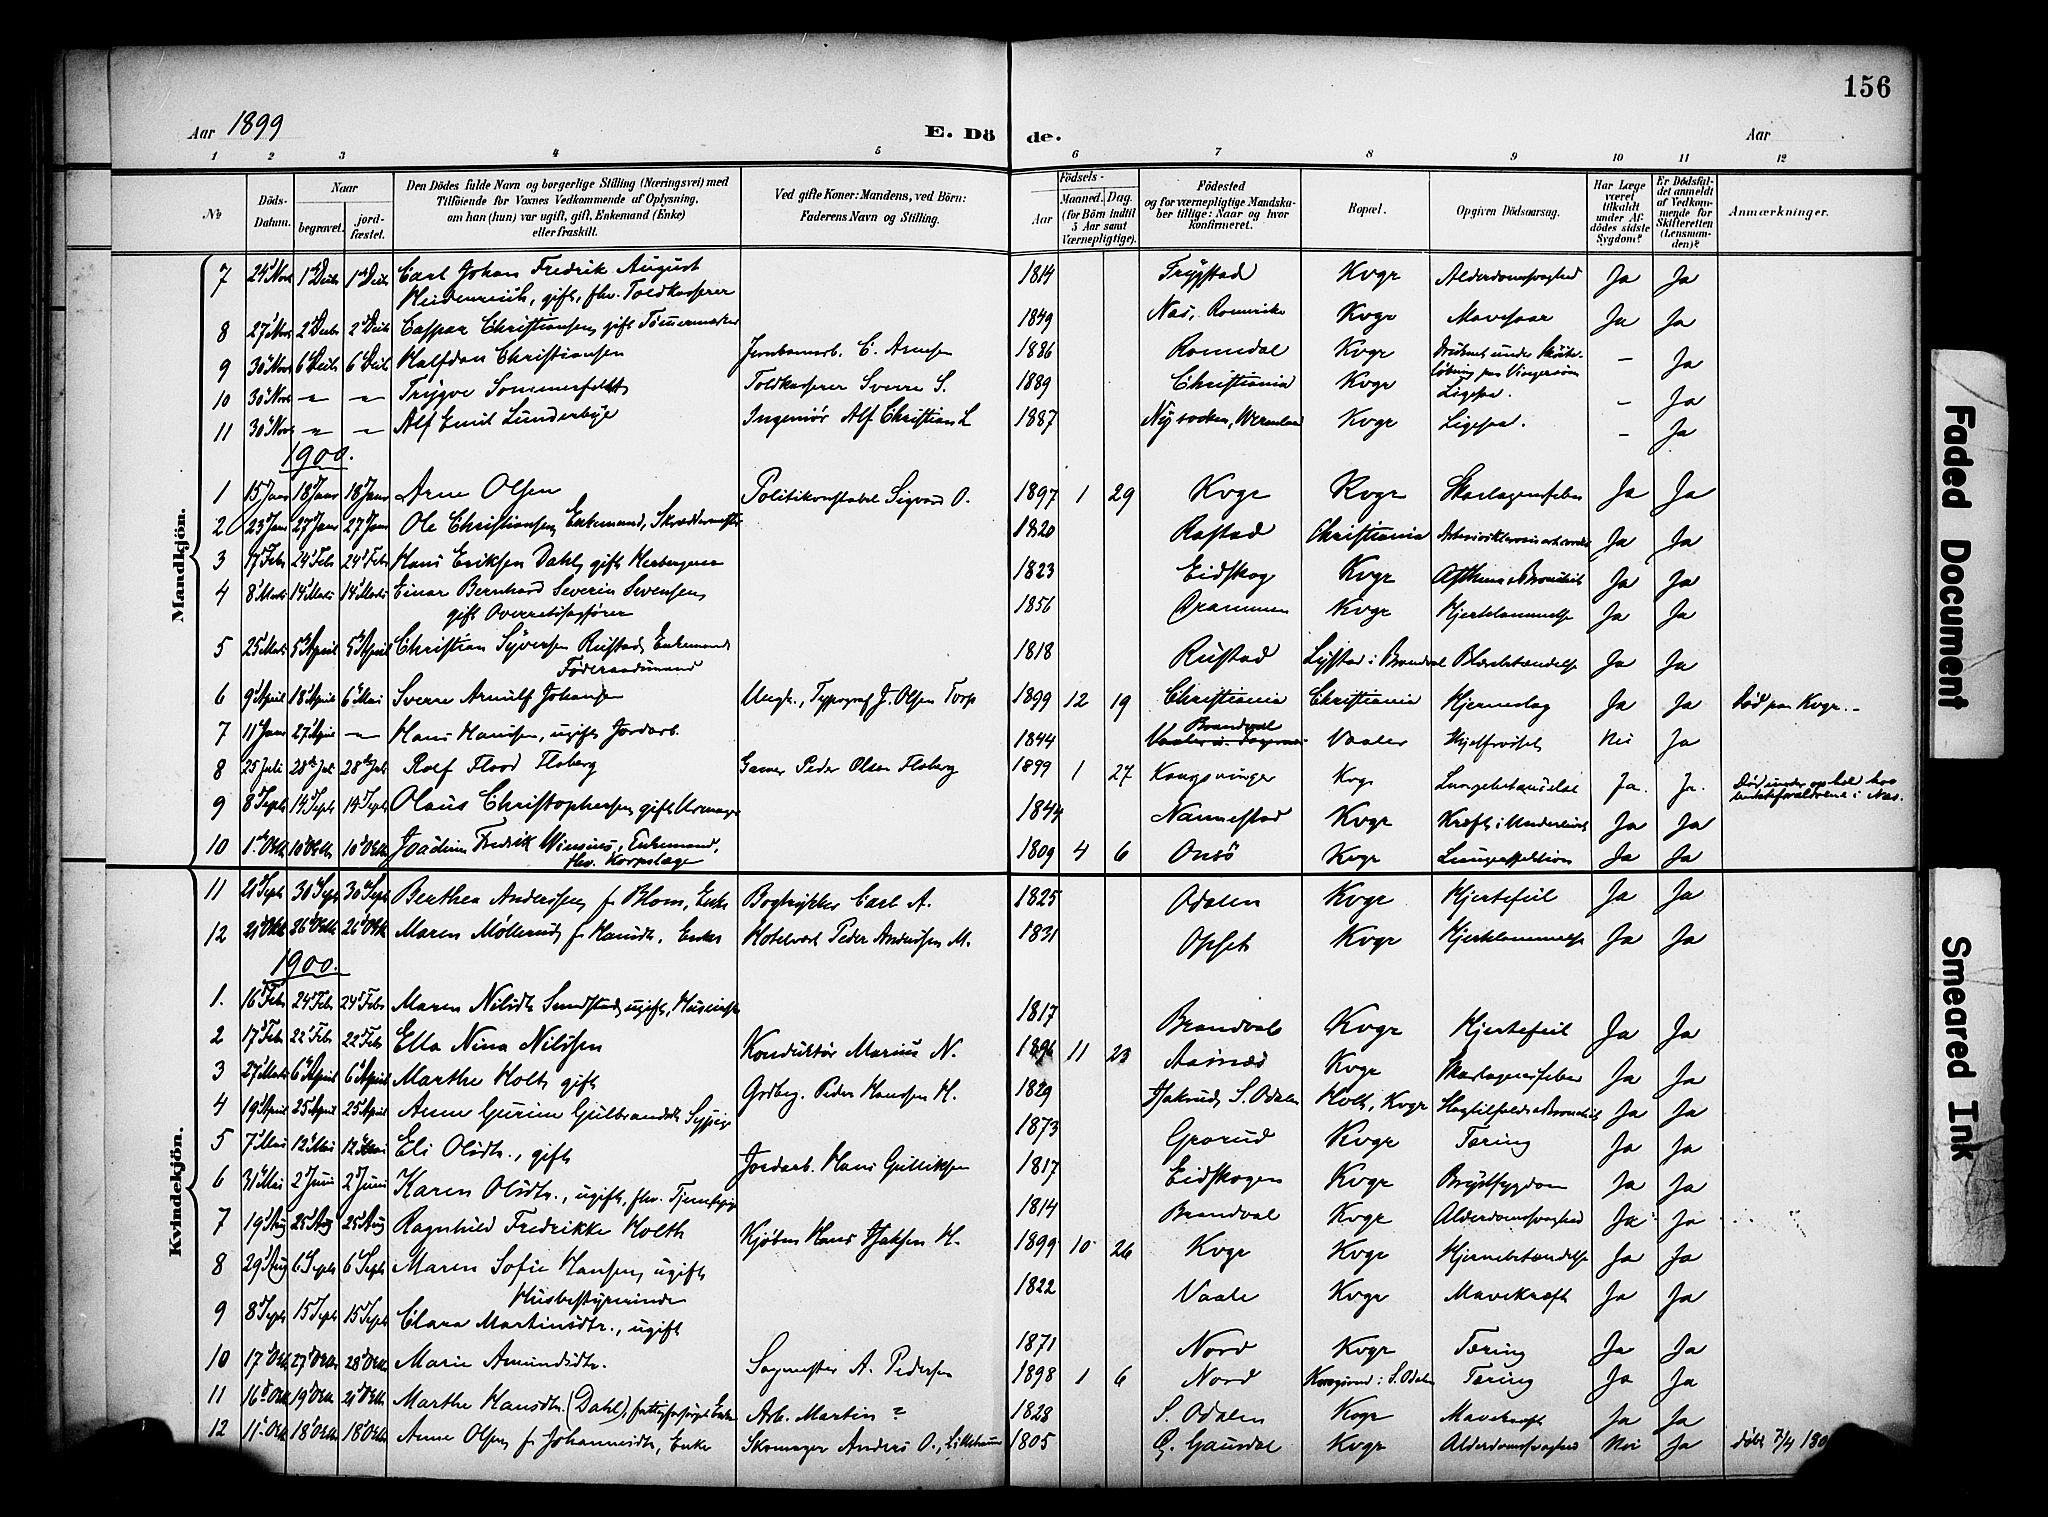 156
Aar 1899
E. Dö de.
Aar
1 2 3 4 5 6 7 8 9 10 11 12
No
Döds-Datum.
Naar
begravet.
jord-fæstet.
Den Dödes fulde Navn og borgerlige Stilling (Næringsvei) med
Tilföiende for Voxnes Vedkommende af Oplysning,
om han (hun) var ugift, gift, Enkemand (Enke)
eller fraskilt.
Ved gifte Koner: Mandens, ved Börn:
Faderens Navn og Stilling.
Födsels-
Aar
Maaned. Dag.
(for Börn indtil
5 Aar samt
Værnepligtige).
Födested
og for værnepligtige Mandska-
ber tillige: Naar og hvor
konfirmeret.
Bopæl.
Opgiven Dödsaarsag.
Har Læge
været
tilkaldt
under Af-
dödes sidste
Sygdom?
Er Dödsfal-
det anmeldt
af Vedkom-
mende for
Skifteretten
(Lensman-
den)?
Anmærkninger.
Mandkjön.
7 24 Novb 1 Decb 1 Decb Carl Johan Fredrik August 1814 Kvgr Alderdomssvaghed Ja Ja
Heidenreich, gift, fhv. Toldkasserer
8 27 Novb 2 Decb 2 Decb Caspar Christiansen, gift 1849 Næs, Romerike Kvgr Mavesaar Ja Ja
9 30 Novb 6 Decb 6 Decb Halfdan Christiansen Jernbanearb. C. Arnesen 1886 Romedal Kvgr Druknet under Skøite- – Ja
løbning paa Vingersøen
10 30 Novb – – Trygve Sommerfeldt Toldkasserer Sverre S. 1889 Christiania Kvgr Ligesaa. – Ja
11 30 Novb – – Alf Emil Lunderbye Ingeniör Alf Christian L 1887 Kvgr Ligesaa. – Ja
1900.
1 15 Janr 18 Janr 18 Janr Arne Olsen Politikonstabel Sigvard O. 1897 1 29 Kvgr Kvgr Skarlagensfeber Ja Ja
2 23 Janr 27 Janr 27 Janr Ole Christiansen, Enkemand, Skræddermester 1820 Christiania Ja Ja
3 17 Febr 24 Febr 24 Febr Hans Eriksen Dahl, gift 1823 Eidskog Kvgr Ja Ja
4 8 Marts 14 Marts 14 Marts Einar Bernhard Severin Svensen, 1856 Drammen Kvgr Hjertelammelse Ja Ja
gift Overretssagfører
5 25 Marts 5 April 5 April Christian Syversen Rustad, Enkemand 1818 Rustad Brandval Blærebetændelse Ja Ja
Føderaadsmand
6 9 April 18 April 6 Mai Sverre Arnulf Johansen Ungk., Typograf J. Olsen Torp 1899 12 19 Christiania Christiania Hjerneslag Ja Ja Død paa Kvgr.
7 11 Janr 27 April – Hans Hansen, ugift, Jordarb. 1844 Brandval Vaaler Nei Ja
8 25 Juli 28 Juli 28 Juli Rolf Flood Floberg Garver Peder Olsen Floberg 1899 1 27 Kongsvinger Kvgr Lungebetændelse Ja. Ja. Død under ophold hos
bedsteforældrene i Næs.
9 8 Septb 14 Septb 14 Septb Olaus Christophersen, gift Urmager 1844 Nannestad Kvgr Kræft i Underlivet Ja Ja
10 1 Oktb 10 Oktb 10 Oktb Joachim Fredrik Winsnes, Enkemand, 1809 4 6 Onsö Kvgr Ja Ja
fhv. Korpslæge
Kvindekjön.
11 21 Septb 30 Septb 30 Septb Berthea Anderssen, f. Blom, Enke Bogtrykker Carl A. 1825 Odalen Kvgr Hjertefeil Ja Ja
12 21 Oktb 26 Oktb 26 Oktb Maren Möllerud, f. Hansdt., Enke Hotelvært Peder Andersen M. 1831 Opset Kvgr Hjertelammelse Ja Ja
1900.
1. 16 Febr 24 Febr 24 Febr Maren Nilsdt. Sundstad, ugift, 1817 Brandval Kvgr Hjertefeil Ja Ja
2 17 Febr 22 Febr 22 Febr Ella Nina Nilssen Konduktör Marius N. 1896 11 23 Aasnæs Kvgr Skarlagensfeber Ja Ja
3 27 Marts 6 April 6 April Marthe Holt, gift Grdbrg. Peder Hansen H. 1829 S. Odalen Holt, Kvgr Ja Ja
4 19 April 25 April 25 April Anne Gurine Gulbrandsdt., Sypige 1873 Grorud Kvgr Tæring Ja Ja
5 7 Mai 12 Mai 12 Mai Eli Olsdt., gift Jordarb. Hans Gulliksen 1817 Eidskogen Kvgr Brystsygdom Ja Ja
6 31 Mai 2 Juni 2 Juni Karen Olsdt., ugift, fhv. Tjenestepige 1814 Brandval Kvgr Alderdomssvaghed Ja Ja
7 19 Aug 25 Aug 25 Aug Ragnhild Fredrikke Holth Kjøbm Hans Isaksen H. 1899 10 26 Kvgr Kvgr Hjernebetændelse Ja Ja
8 29 Aug 6 Septb 6 Septb Maren Sofie Hansen, ugift 1822 Vaale Kvgr Mavekræft Ja Ja
Husbestyrerinde
9 8 Septb 15 Septb 15 Septb Clara Martinsdtr., ugift 1871 Nord Kvgr Tæring Ja Ja
10 17 Oktb 27 Oktb 28 Oktb Marie Amundsdtr. Sagmester A. Pedersen 1898 1 6 Nord i S. Odalen Tæring Ja Ja
11 16 Oktb 19 Oktb 21 Oktb Marthe Hansdtr. (Dahl), fattigforsørget Enke Arb. Martin ? 1828 S. Odalen Kvgr Mavekræft Ja Ja
12 11 Oktb 18 Oktb 18 Oktb Anne Olsen, f. Johannesdt., Enke Skomager Anders O., 1805 Gausdal Kvgr Alderdomssvaghed Nei Ja døbt 7/4 180
Faded Document
Smeared Ink